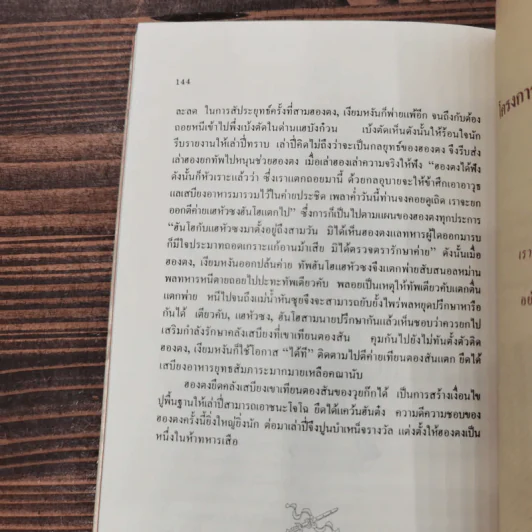 144
ละลด ในการสัประยุทธ์ครั้งที่สามฮองตง, เงียมหงันก็พ่ายแพ้อีก จนถึงกับต้อง
ถอยหนีเข้าไปพึ่งเบ้งตัดในด่านแฮบังก๋วน เบ้งตัดเห็นดังนั้นให้ร้อนใจนัก
รีบรายงานให้เล่าปี่ทราบ เล่าปี่คิดไม่ถึงว่าจะเป็นกลยุทธ์ของฮองตง จึงรีบส่ง
เล่าฮองยกทัพไปหนุนช่วยฮองตง เมื่อเล่าฮองเล่าความจริงให้ฟัง “ฮองตงได้ฟัง
ดังนั้นก็หัวเราะแล้วว่า ซึ่งเราแตกถอยมานี้ ด้วยกลอุบายจะให้ข้าศึกเอาอาวุธ
แลเสบียงอาหารมารวมไว้ในค่ายประชิด เพลาค่ำวันนี้ท่านจงคอยดูเถิด เราจะยก
ออกตีค่ายแฮหัวซงฮันโฮแตกไป” ซึ่งการก็เป็นไปตามแผนของฮองตงทุกประการ
“ฮันโฮกับแฮหัวซงมาตั้งอยู่ถึงสามวัน มิได้เห็นฮองตงแลทหารผู้ใดออกมารบ
ก็มีใจประมาทถอดเกราะแก้อานม้าเสีย มิได้ตรวจตรารักษาค่าย” ดังนั้นเมื่อ
ฮองตง, เงียมหงันออกปล้นค่าย ทัพฮันโฮแฮหัวซงจึงแตกพ่ายสับสนอลหม่าน
พลทหารหนีตายถอยไปปะทะทัพเตียวคับ พลอยเป็นเหตุให้ทัพเตียวคับแตกตื่น
แตกพ่าย หนีไปจนถึงแม่น้ำหันซุยจึงจะสามารถยับยั้งไพร่พลหยุดปรึกษาหารือ
กันได้ เตียวคับ, แฮหัวซง, ฮันโฮสามนายปรึกษากันแล้วเห็นชอบว่าควรยกไป
เสริมกำลังรักษาคลังเสบียงที่เขาเทียนตองสัน คุมกันไปยังไม่ทันตั้งตัวติด
ฮองตง, เงียมหงันก็ใช้โอกาส “ได้ที” ติดตามไปตีค่ายเทียนตองสันแตก ยึดได้
เสบียงอาหารยุทธสัมภาระมากมายเหลือคณานับ
ฮองตงยึดคลังเสบียงเขาเทียนตองสันของวุยก๊กได้ เป็นการสร้างเงื่อนไข
ปูพื้นฐานให้เล่าปี่สามารถเอาชนะโจโฉ ยึดได้แคว้นฮันต๋ง ความดีความชอบของ
ฮองตงครั้งนี้ยิ่งใหญ่ยิ่งนัก ต่อมาเล่าปี่จึงปูนบำเหน็จรางวัล แต่งตั้งให้ฮองตงเป็น
หนึ่งในห้าทหารเสือ